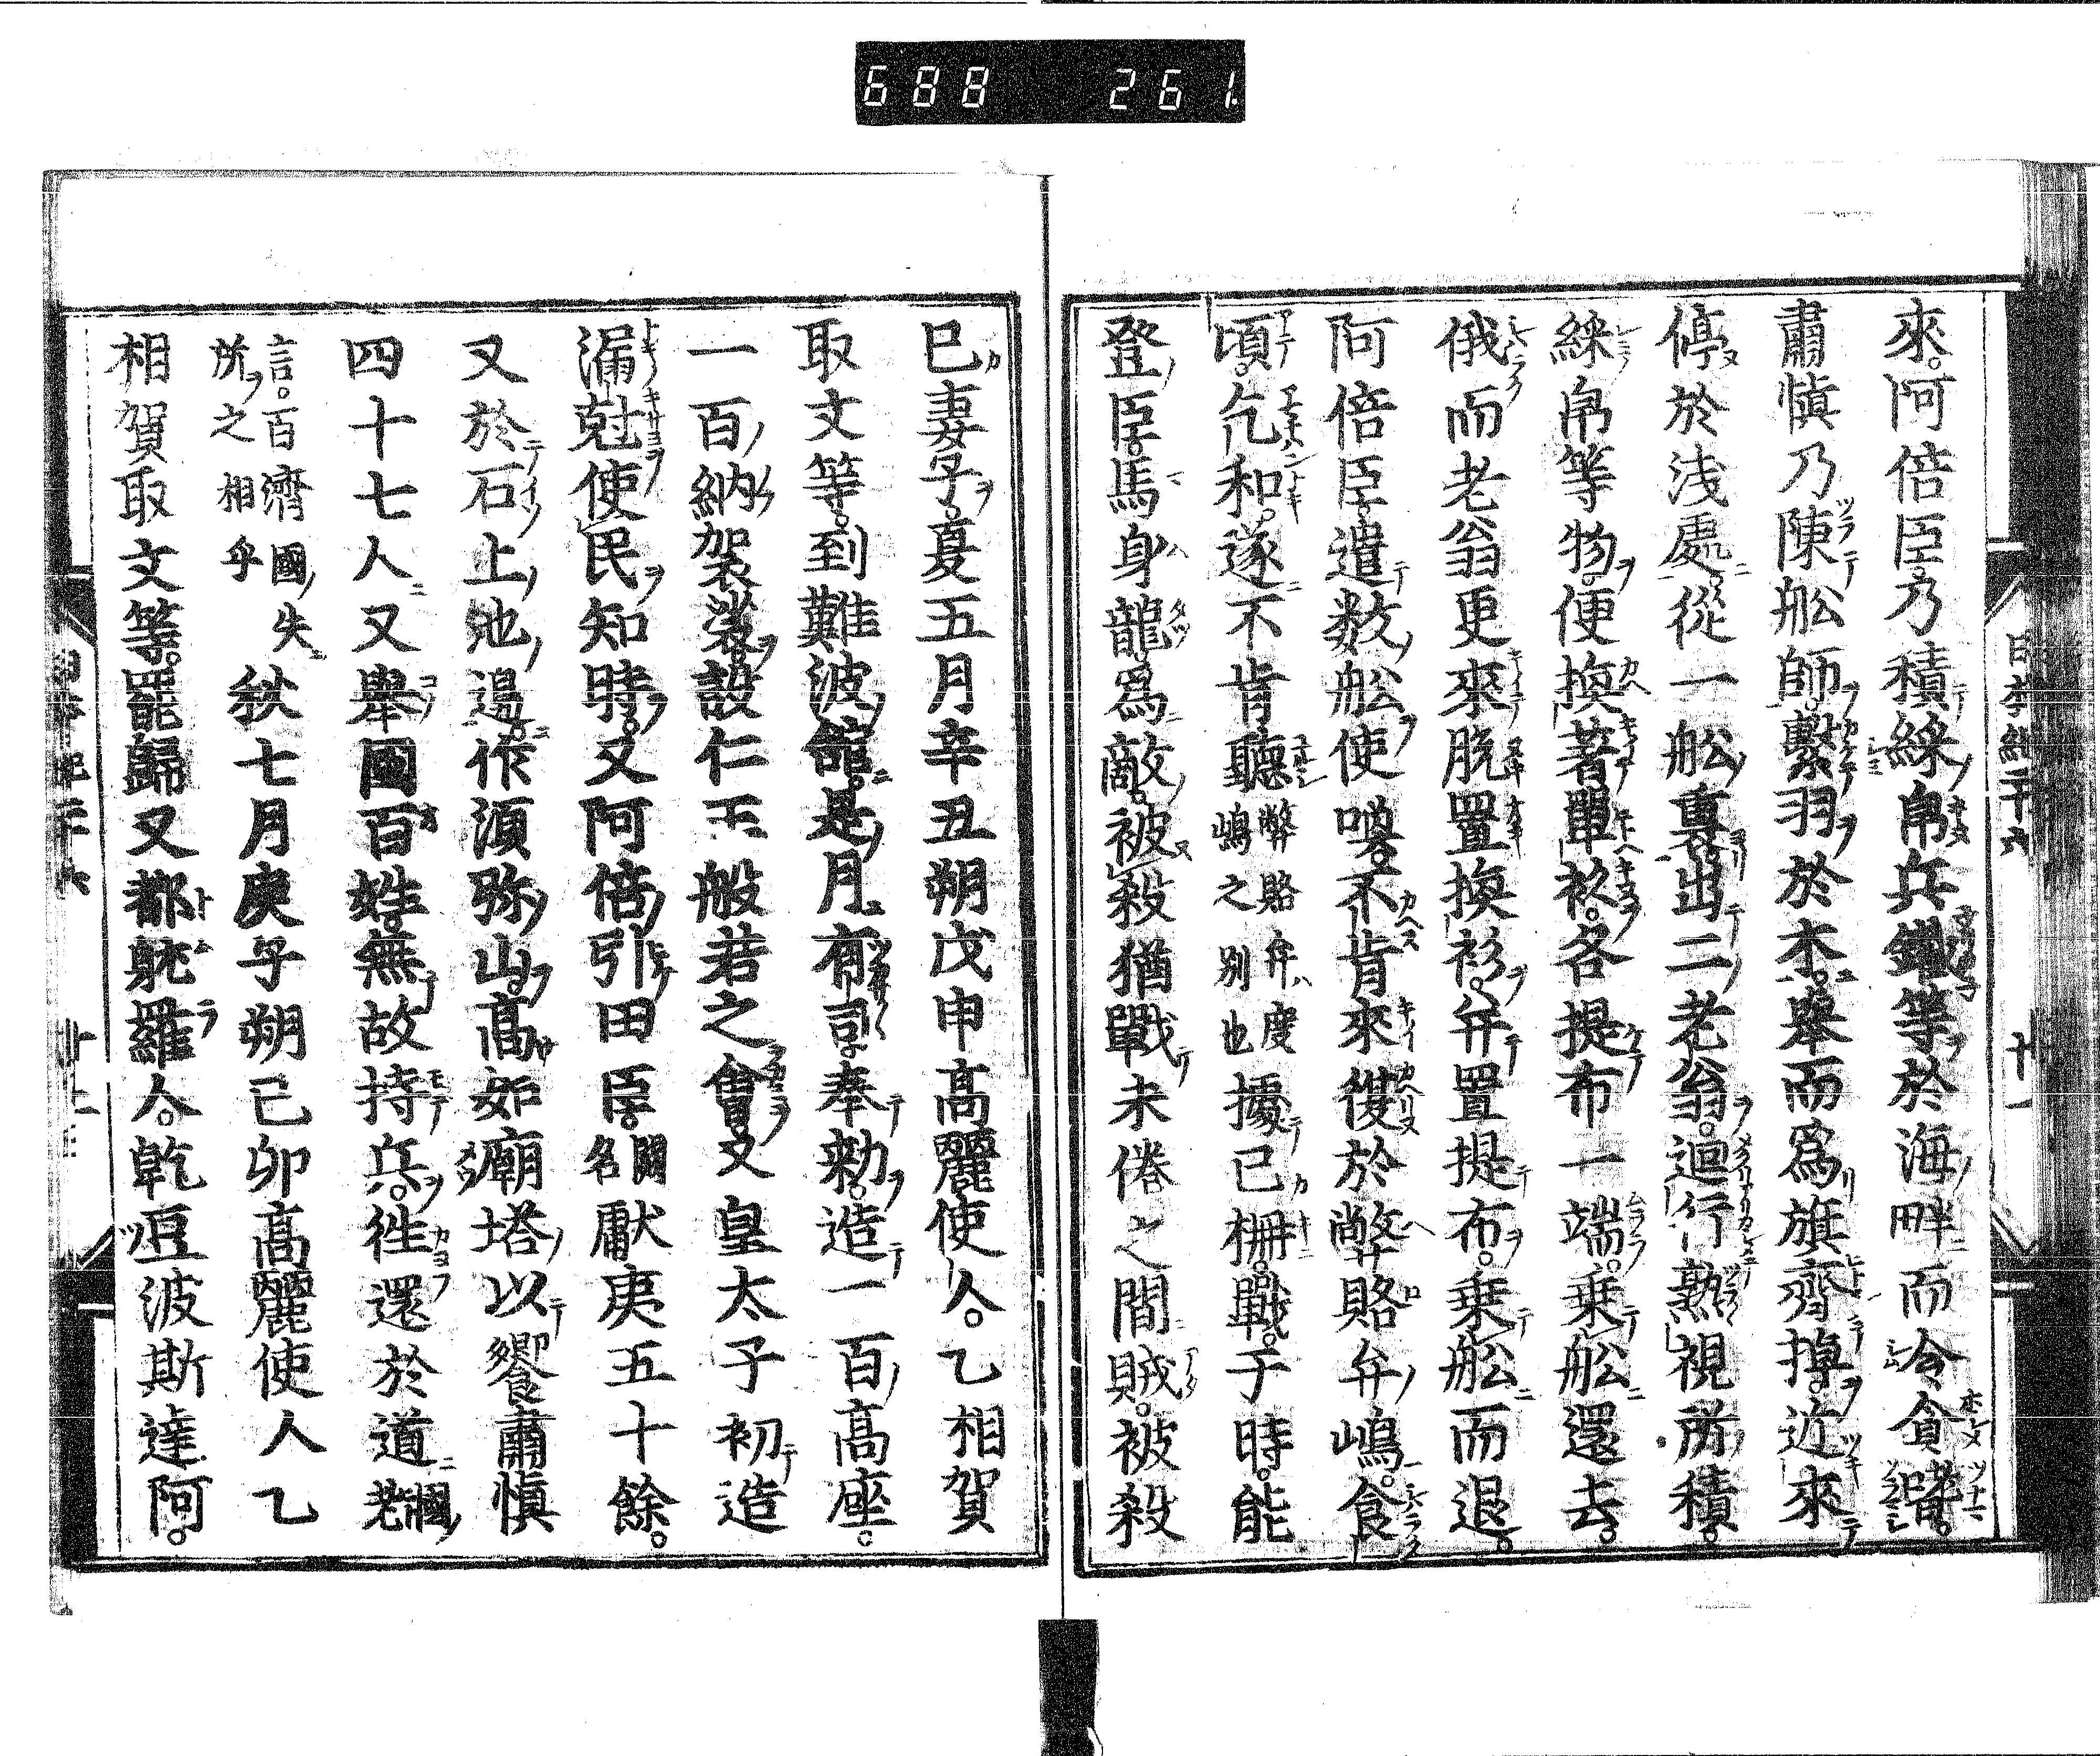 688 261.
來。阿倍臣。乃積綵帛兵鐵等於海畔而令貪嗜。
肅愼乃陳舩師。繋羽於木。擧而爲旗。齊棹。近來
停於浅處。從一舩。裏出二老翁。迴行。熟視所積。
綵帛等物。便換著單衫。各提布一端。乗舩還去。
俄而老翁更來。脱置換衫。弁置提布。乗舩而退。
阿倍臣。遣数舩使喚。不肯來。復於弊賂弁嶋。食
頃。乞和。遂不肯聽弊賂弁度嶋之別也據己柵。戰。于時。能
登臣。馬身龍。爲敵。被殺猶戰未倦之間。賊。被殺
己妻子。夏五月辛丑朔戊申高麗使人。乙相賀
取文等。到難波館。是月。有司。奉勅。造一百高座。
一百納袈裟。設仁王般若之會。又皇太子初造
漏尅使民知時。又阿倍引田臣。闕名獻夷五十餘。
又於石上池邊。作須弥山。高如廟塔以饗肅愼
四十七人又擧國百姓。無故持兵。徃還於道國老
言。百濟國失所之相乎秋七月庚子朔己卯高麗使人乙
相賀取文等。罷歸又都貨羅人。乾豆波斯達阿。
日本紀二十六 十一